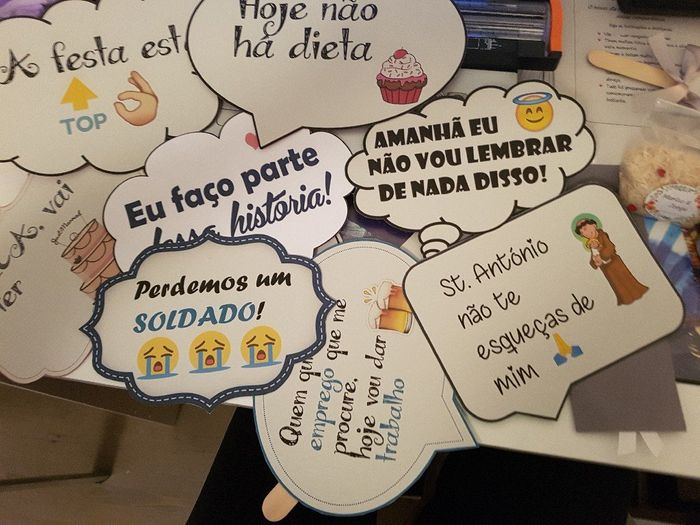 A festa est
TOP
Hoje não
há dieta
AMANHÃ EU
NÃO VOU LEMBRAR
DE NADA DISSO!
Eu faço parte
dessa historia!
A, vai
ter
Perdemos um
SOLDADO!
Quem qu
emprego que me
procure,
hoje vou dar
trabalho
St. António
não te
esqueças de
mim